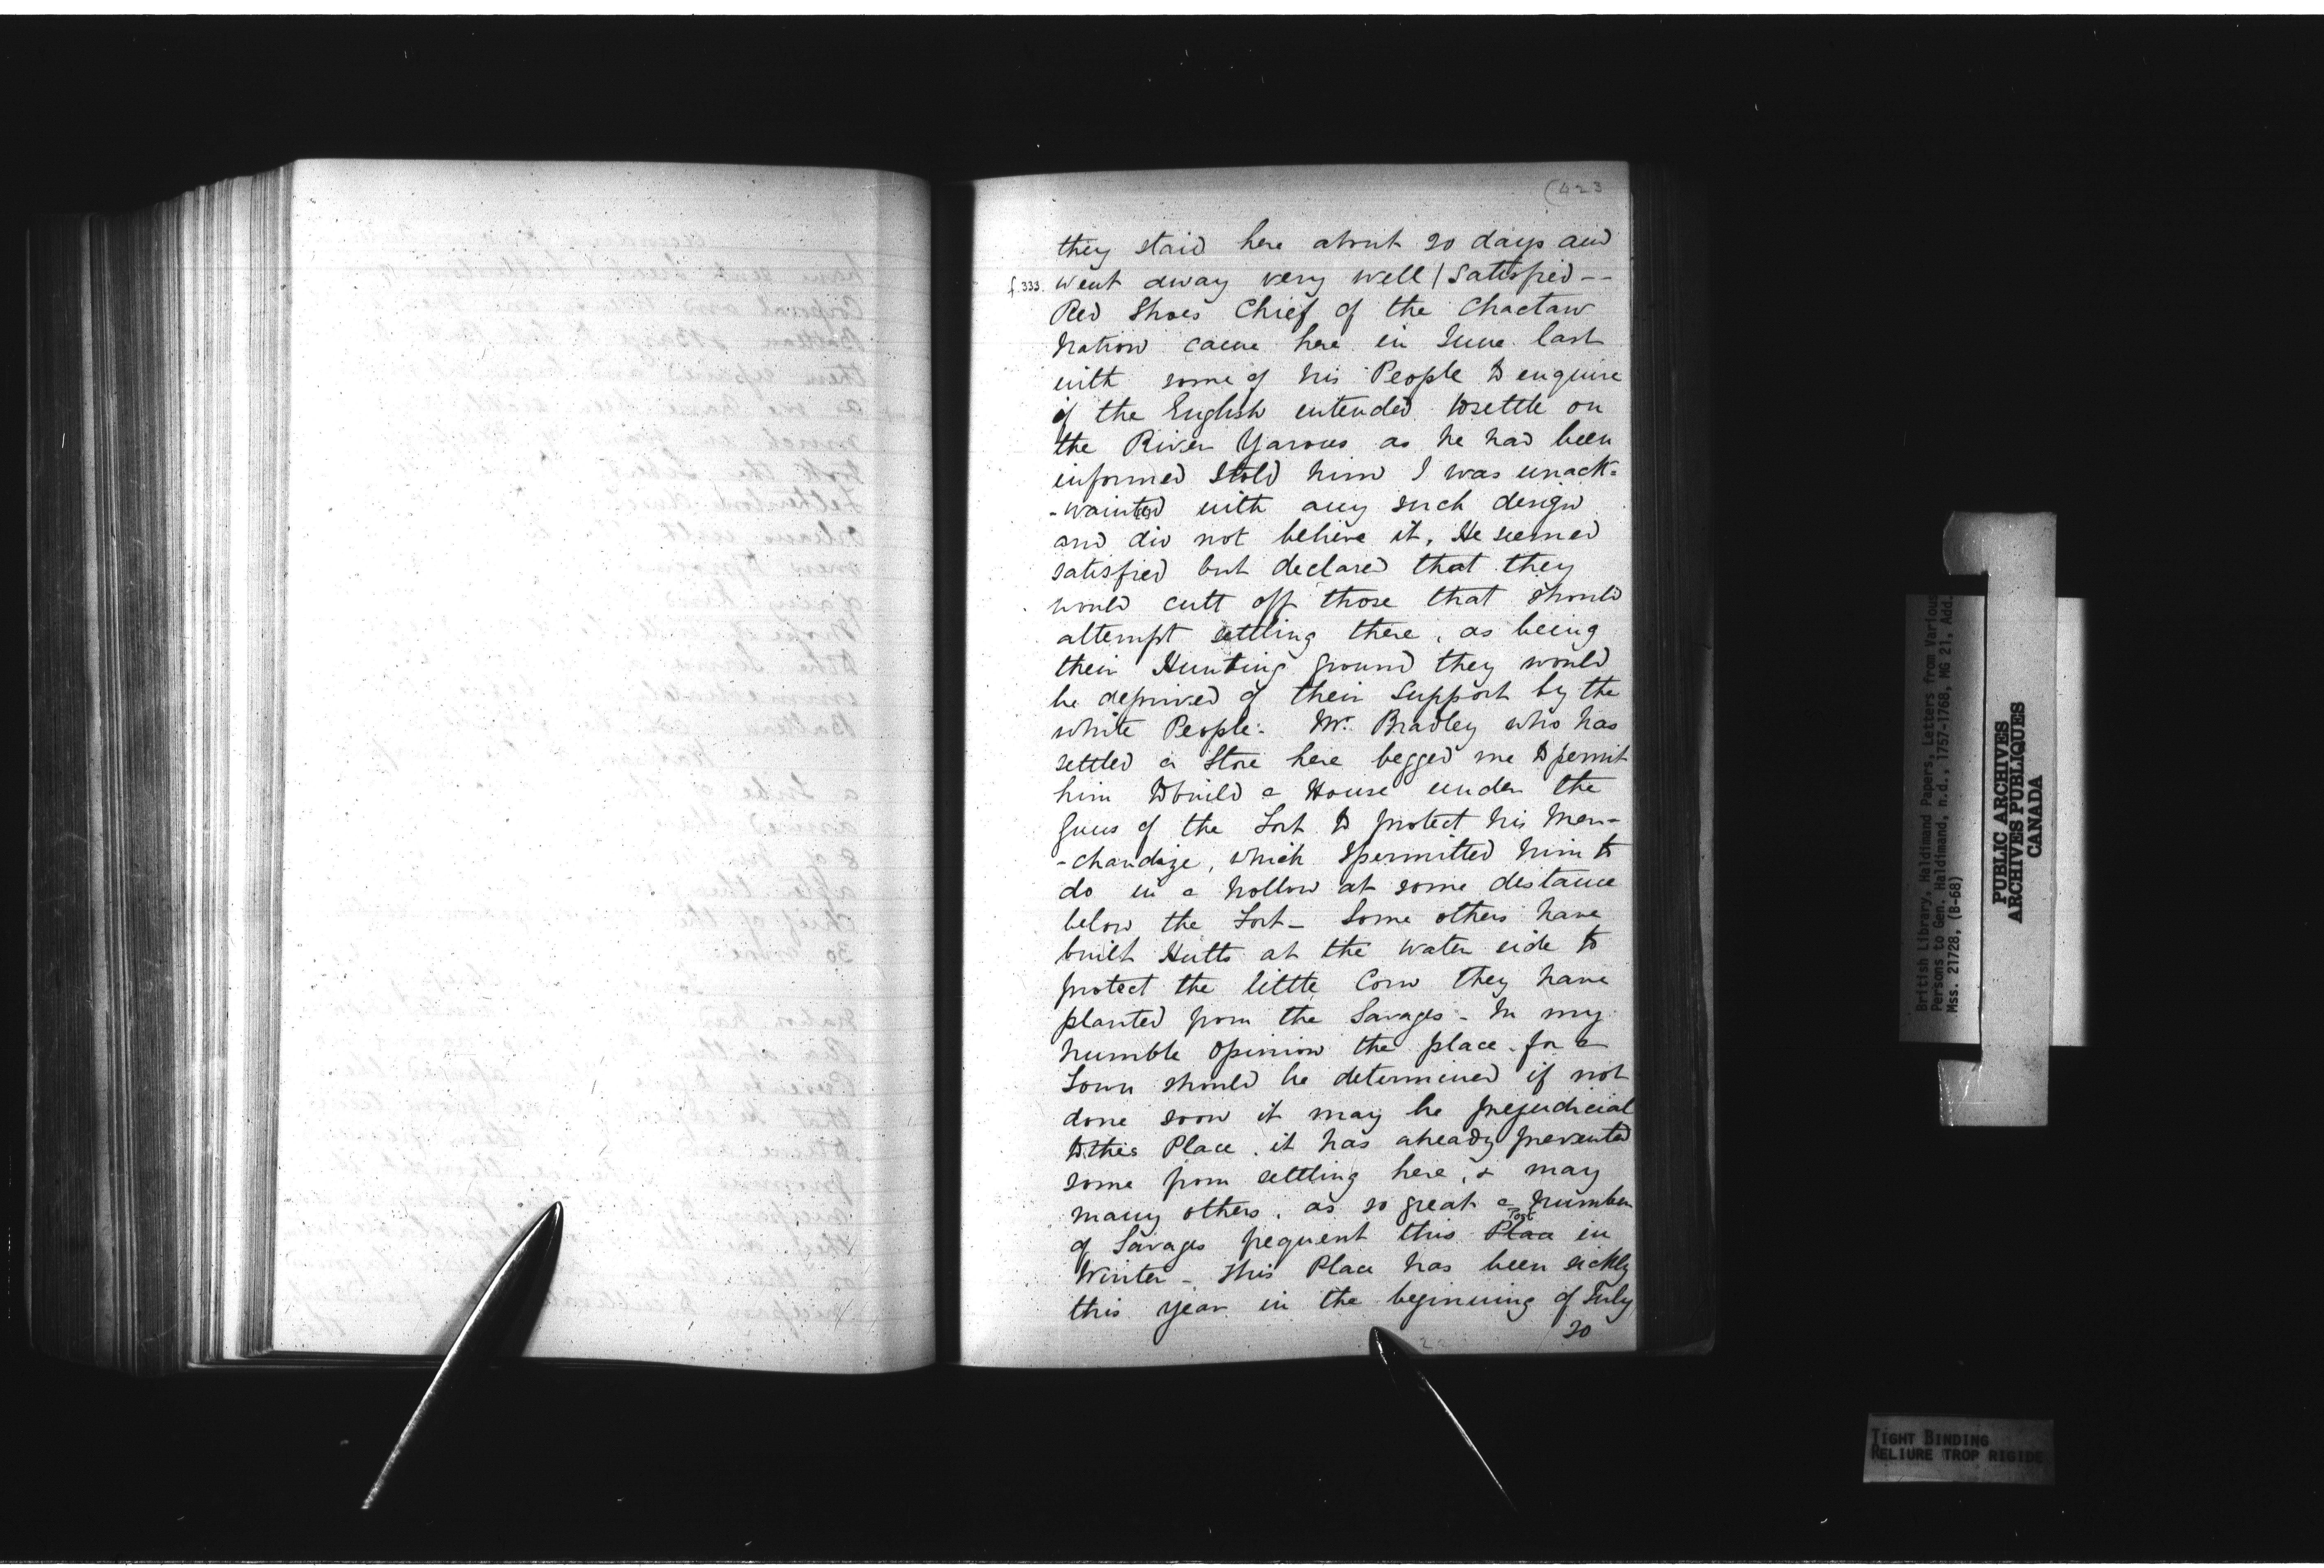 (423
they staid here about 20 days and
f.333. went away very well / satisfied --
Red Shoes Chief of the Chactaw
Nation came here in June last
with some of his People to enquire
if the English entended to settle on
the River Yasous as he had been
informed I told him I was unack-
-wainted with any such design
and did not believe it, He seemed
satisfied but declared that they
would cutt off those that should
attempt settling there, as being
their Hunting ground they would
be deprived of their Support by the
white People. Mr. Bradley who has
settled a Store here begged me to permit
him to build a House under the
guns of the Fort to protect his Mer-
-chandize, which I permitted him to
do in a hollow at some distance
below the Fort - Some others have
built Hutts at the water side to
protect the little Corn they have
planted from the Savages - In my
humble opinion the place for a
Town should be determined if not
done soon it may be prejudicial
to this Place. it has already prevented
some from settling here, & may
many others, as so great a number
Post
of Savages frequent this Place in
Winter - This Place has been sickly
this year in the beginning of July
20
British Library, Haldimand Papers, Letters from Various
Persons to Gen. Haldimand, n.d., 1757-1768, MG 21, Add.
Mss. 21728, (B-68)
PUBLIC ARCHIVES
ARCHIVES PUBLIQUES
CANADA
TIGHT BINDING
RELIURE TROP RIGIDE